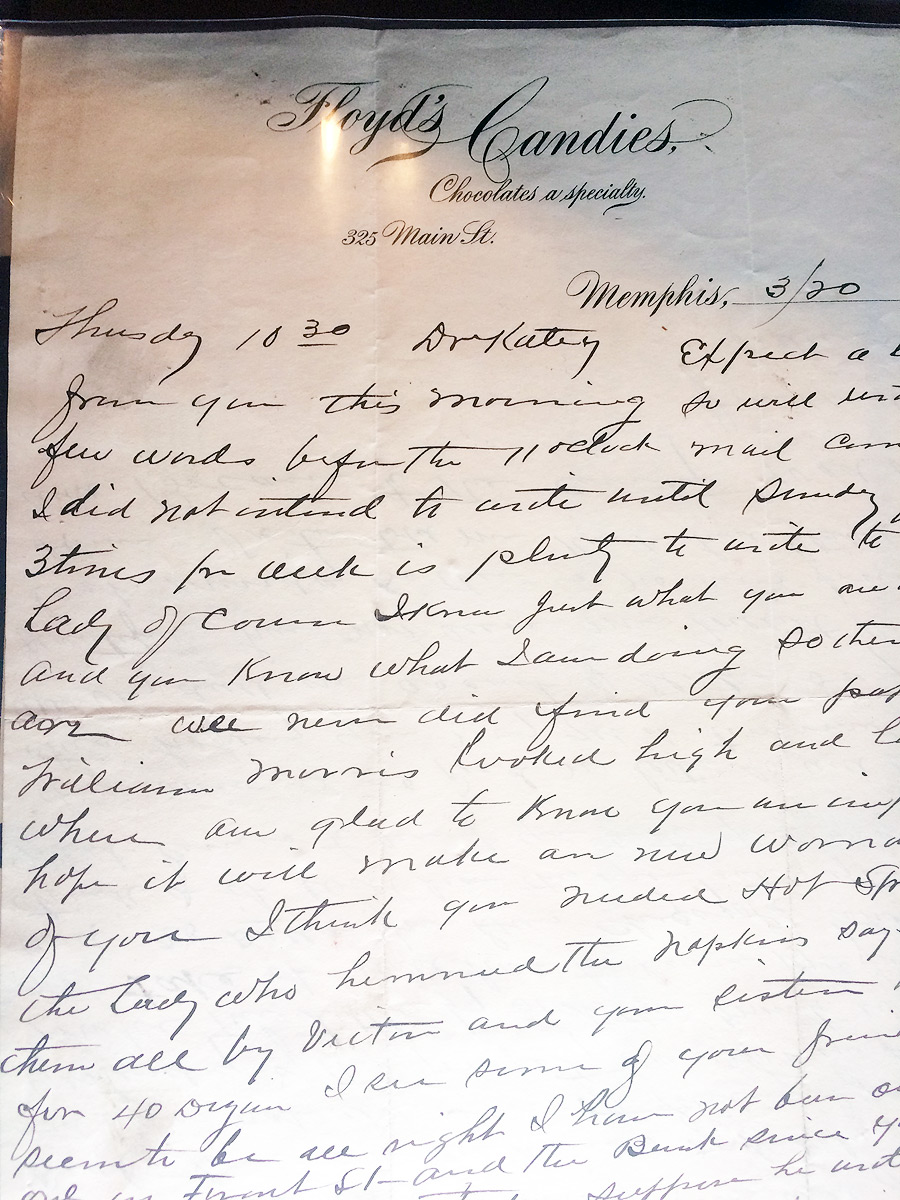 Floyd's Candies.
Chocolates a specialty.
325 Main St.
Memphis, 3/20
Thursday 10 30 Dr Katey Expect a
from you this morning so will
few words before the 11 oclock mail
I did not intend to write until Sunday
3 times per week is plenty to write to
Lady of course I know just what you are
and you know what I am doing so
are we never did find your
William Morris looked high and
where am glad to know you are
hope it will make an new
of you I think you needed Hot
the Lady who hemmed the napkins say
them all by Victor and your sister
for 40 I see some of your
seem to be all right I have not been
Front St and the Bank since
suppose he